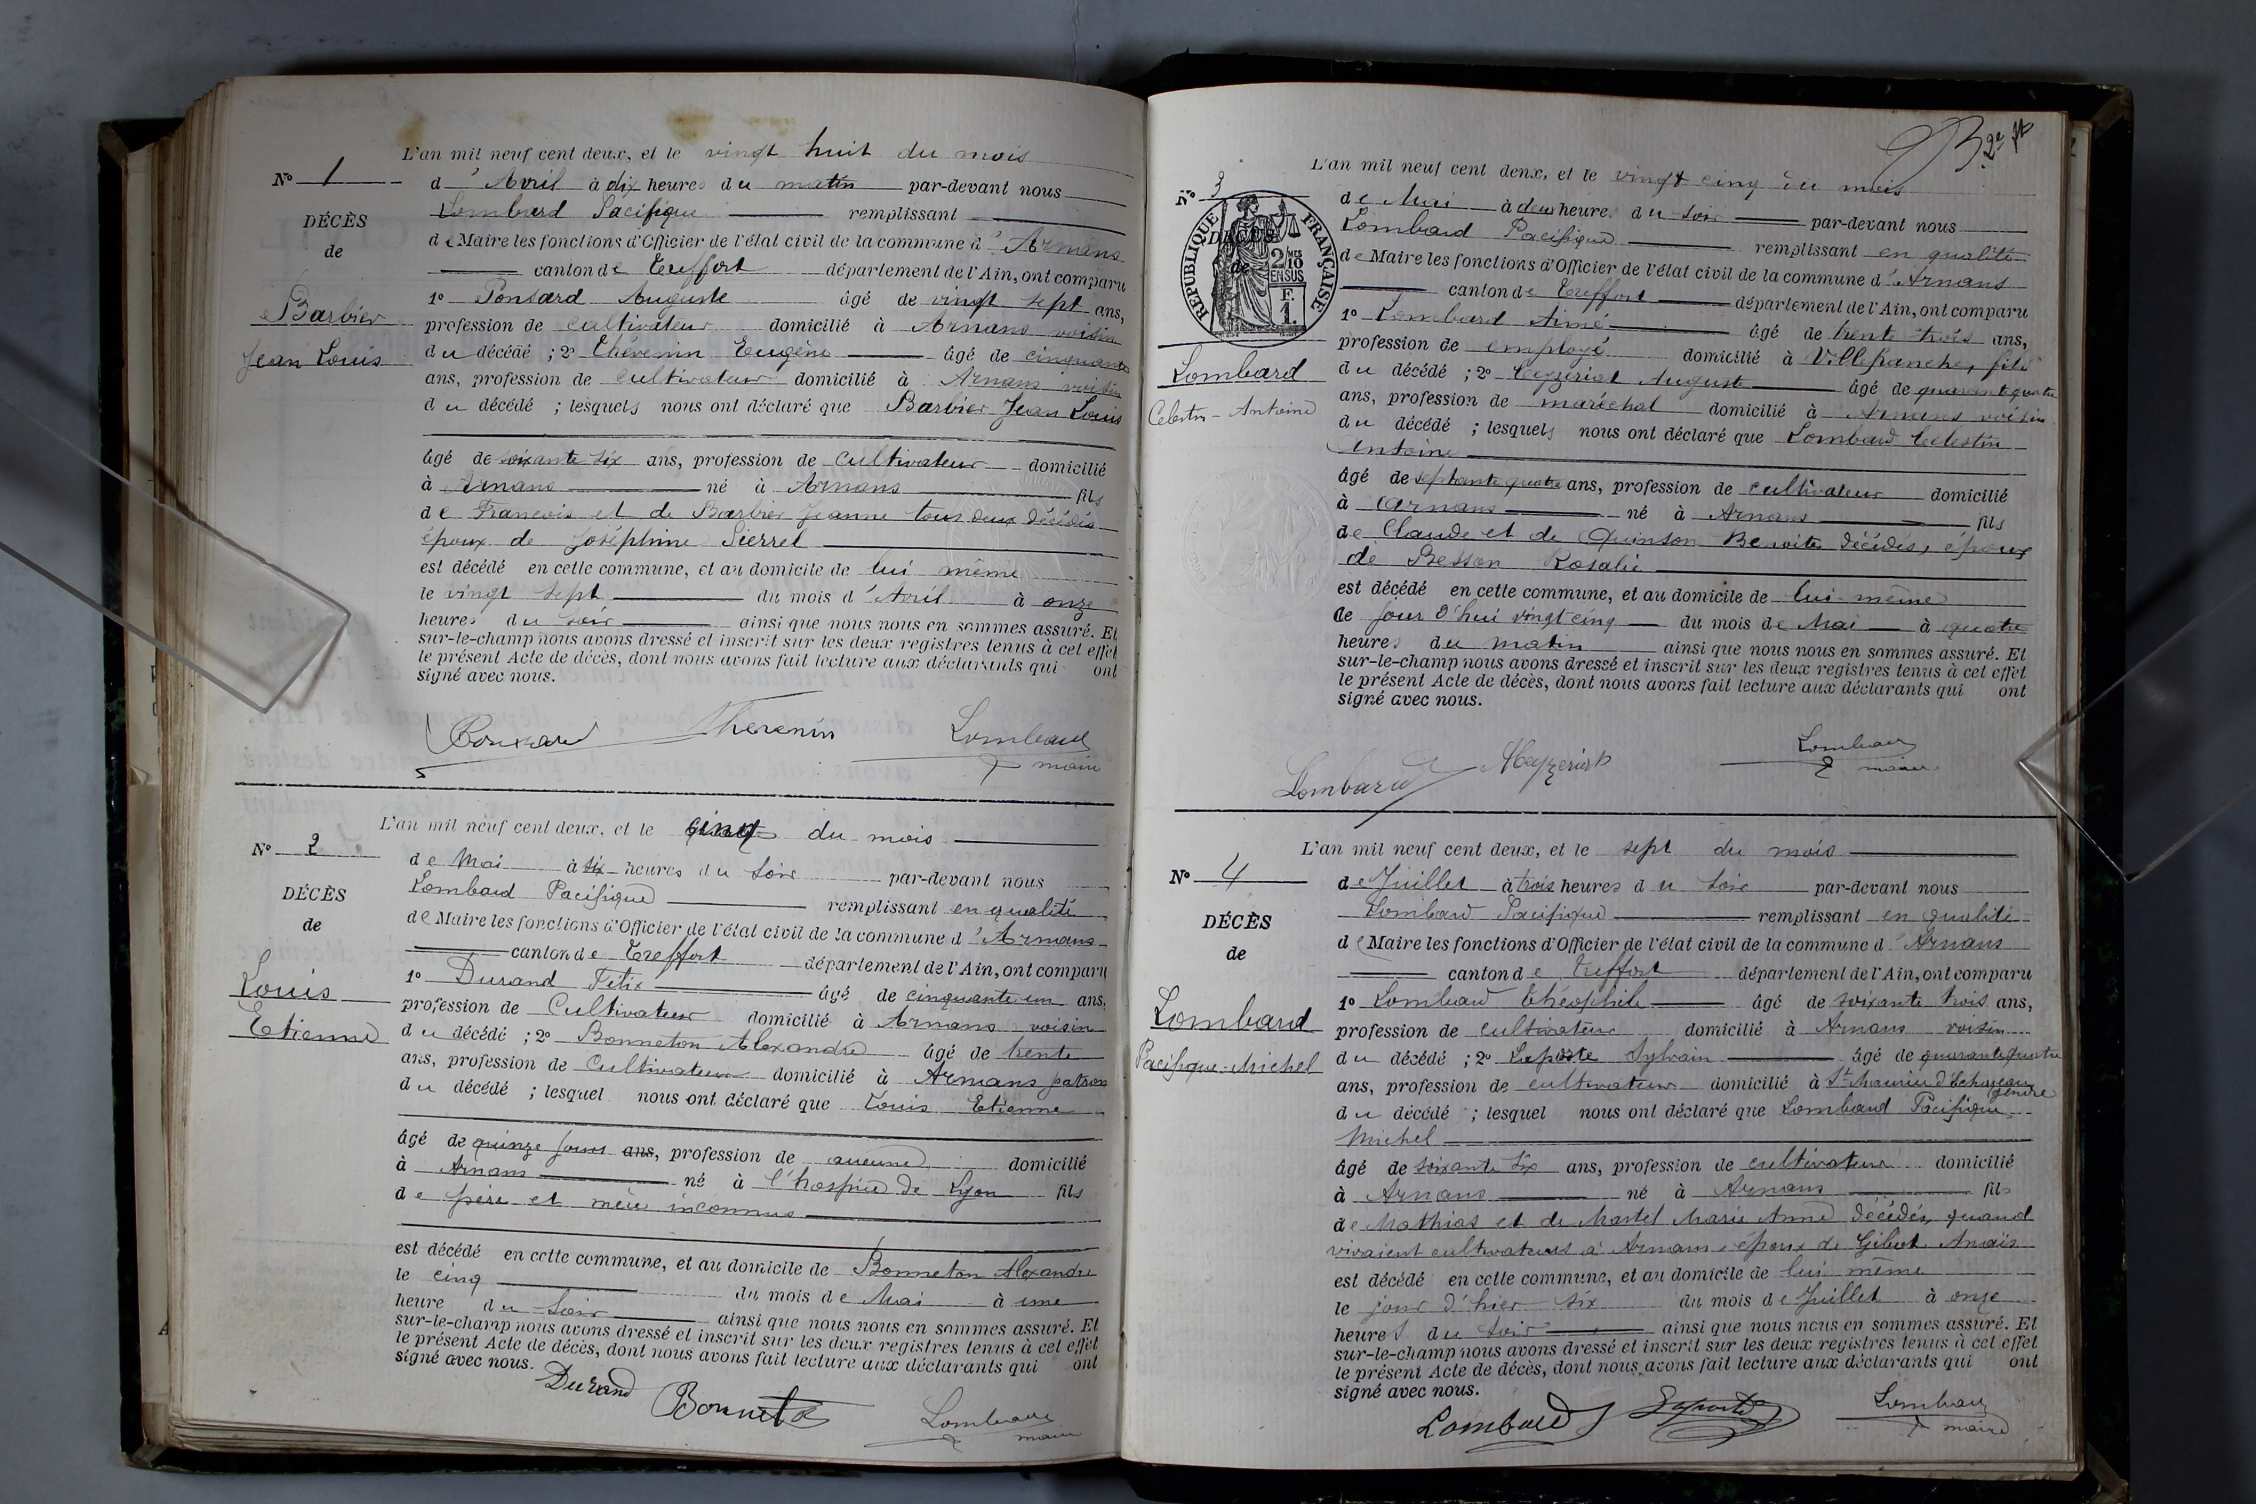 L'an mil neuf cent deux, et le vingt huit du mois
N° 1
d'Avril à dix heures du matin par-devant nous
Lombard Pacifique remplissant
DÉCÈS
de Maire les fonctions d'Officier de l'état civil de la commune d'Arnans
de
canton de Treffort département de l'Ain, ont comparu
1° Ponsard Auguste âgé de vingt sept ans,
Barbier
profession de cultivateur domicilié à Arnans voisin
Jean Louis
du décédé ; 2° Thévenin Eugène âgé de cinquante
ans, profession de cultivateur domicilié à Arnans voisin
du décédé ; lesquels nous ont déclaré que Barbier Jean Louis
âgé de soixante six ans, profession de cultivateur domicilié
à Arnans né à Arnans fils
de François et de Barbier Jeanne tous deux décédés
époux de Joséphine Sierrel
est décédé en cette commune, et au domicile de lui même
le vingt sept du mois d'Avril à onze
heures du soir ainsi que nous nous en sommes assuré. Et
sur-le-champ nous avons dressé et inscrit sur les deux registres tenus à cet effet
le présent Acte de décès, dont nous avons fait lecture aux déclarants qui ont
signé avec nous.
Thevenin Lombard
maire
L'an mil neuf cent deux, et le cinq du mois
N° 2
de Mai à six heures du soir par-devant nous
DÉCÈS
Lombard Pacifique remplissant en qualité
de
de Maire les fonctions d'Officier de l'état civil de la commune d'Arnans
canton de Treffort département de l'Ain, ont comparu
Louis
1° Durand Félix âgé de cinquante un ans,
profession de Cultivateur domicilié à Arnans voisin
Etienne
du décédé ; 2° Bonneton Alexandre âgé de trente
ans, profession de Cultivateur domicilié à Arnans patron
du décédé ; lesquel nous ont déclaré que Louis Etienne
âgé de quinze jours ans, profession de aucune domicilié
à Arnans né à l'hospice de Lyon fils
de père et mère inconnus
est décédé en cette commune, et au domicile de Bonneton Alexandre
le cinq du mois de Mai à une
heure du soir ainsi que nous nous en sommes assuré. Et
sur-le-champ nous avons dressé et inscrit sur les deux registres tenus à cet effet
le présent Acte de décès, dont nous avons fait lecture aux déclarants qui ont
signé avec nous.
Durand Bonneton Lombard
maire
2e
L'an mil neuf cent deux, et le vingt cinq du mois
N° 3
de Mai à deux heures du soir par-devant nous
RÉPUBLIQUE FRANÇAISE
2/10 EN SUS
F. 1.
DÉCÈS
de
Lombard Pacifique remplissant en qualité
de Maire les fonctions d'Officier de l'état civil de la commune d'Arnans
canton de Treffort département de l'Ain, ont comparu
1° Lombard Aimé âgé de trente trois ans,
profession de employé domicilié à Villefranche, fils
Lombard
du décédé ; 2° Ceyzeriat Auguste âgé de quarante quatre
Celestin-Antoine
ans, profession de maréchal domicilié à Arnans voisin
du décédé ; lesquels nous ont déclaré que Lombard Celestin
Antoine
âgé de septante quatre ans, profession de cultivateur domicilié
à Arnans né à Arnans fils
de Claude et de Quinson Benoite décédés, époux
de Besson Rosalie
est décédé en cette commune, et au domicile de lui même
le jour d'hui vingt cinq du mois de Mai à quatre
heures du matin ainsi que nous nous en sommes assuré. Et
sur-le-champ nous avons dressé et inscrit sur les deux registres tenus à cet effet
le présent Acte de décès, dont nous avons fait lecture aux déclarants qui ont
signé avec nous.
Lombard Lombard
maire
L'an mil neuf cent deux, et le sept du mois
N° 4
de Juillet à trois heures du soir par-devant nous
Lombard Pacifique remplissant en qualité
DÉCÈS
de
de Maire les fonctions d'Officier de l'état civil de la commune d'Arnans
canton de treffort département de l'Ain, ont comparu
1° Lombard Théophile âgé de soixante trois ans,
Lombard
profession de cultivateur domicilié à Arnans voisin
Pacifique-Michel
du décédé ; 2° Laporte Sylvain âgé de quarante quatre
ans, profession de cultivateur domicilié à St Maurice d'Echazeau gendre
du décédé ; lesquel nous ont déclaré que Lombard Pacifique
Michel
âgé de soixante six ans, profession de cultivateur domicilié
à Arnans né à Arnans fils
de Mathias et de Martel Marie Anne décédés, quand
vivaient cultivateurs à Arnans, époux de Gibert Anaïs
est décédé en cette commune, et au domicile de lui même
le jour d'hier six du mois de Juillet à onze
heures du soir ainsi que nous nous en sommes assuré. Et
sur-le-champ nous avons dressé et inscrit sur les deux registres tenus à cet effet
le présent Acte de décès, dont nous avons fait lecture aux déclarants qui ont
signé avec nous.
Lombard Laporte Lombard
maire